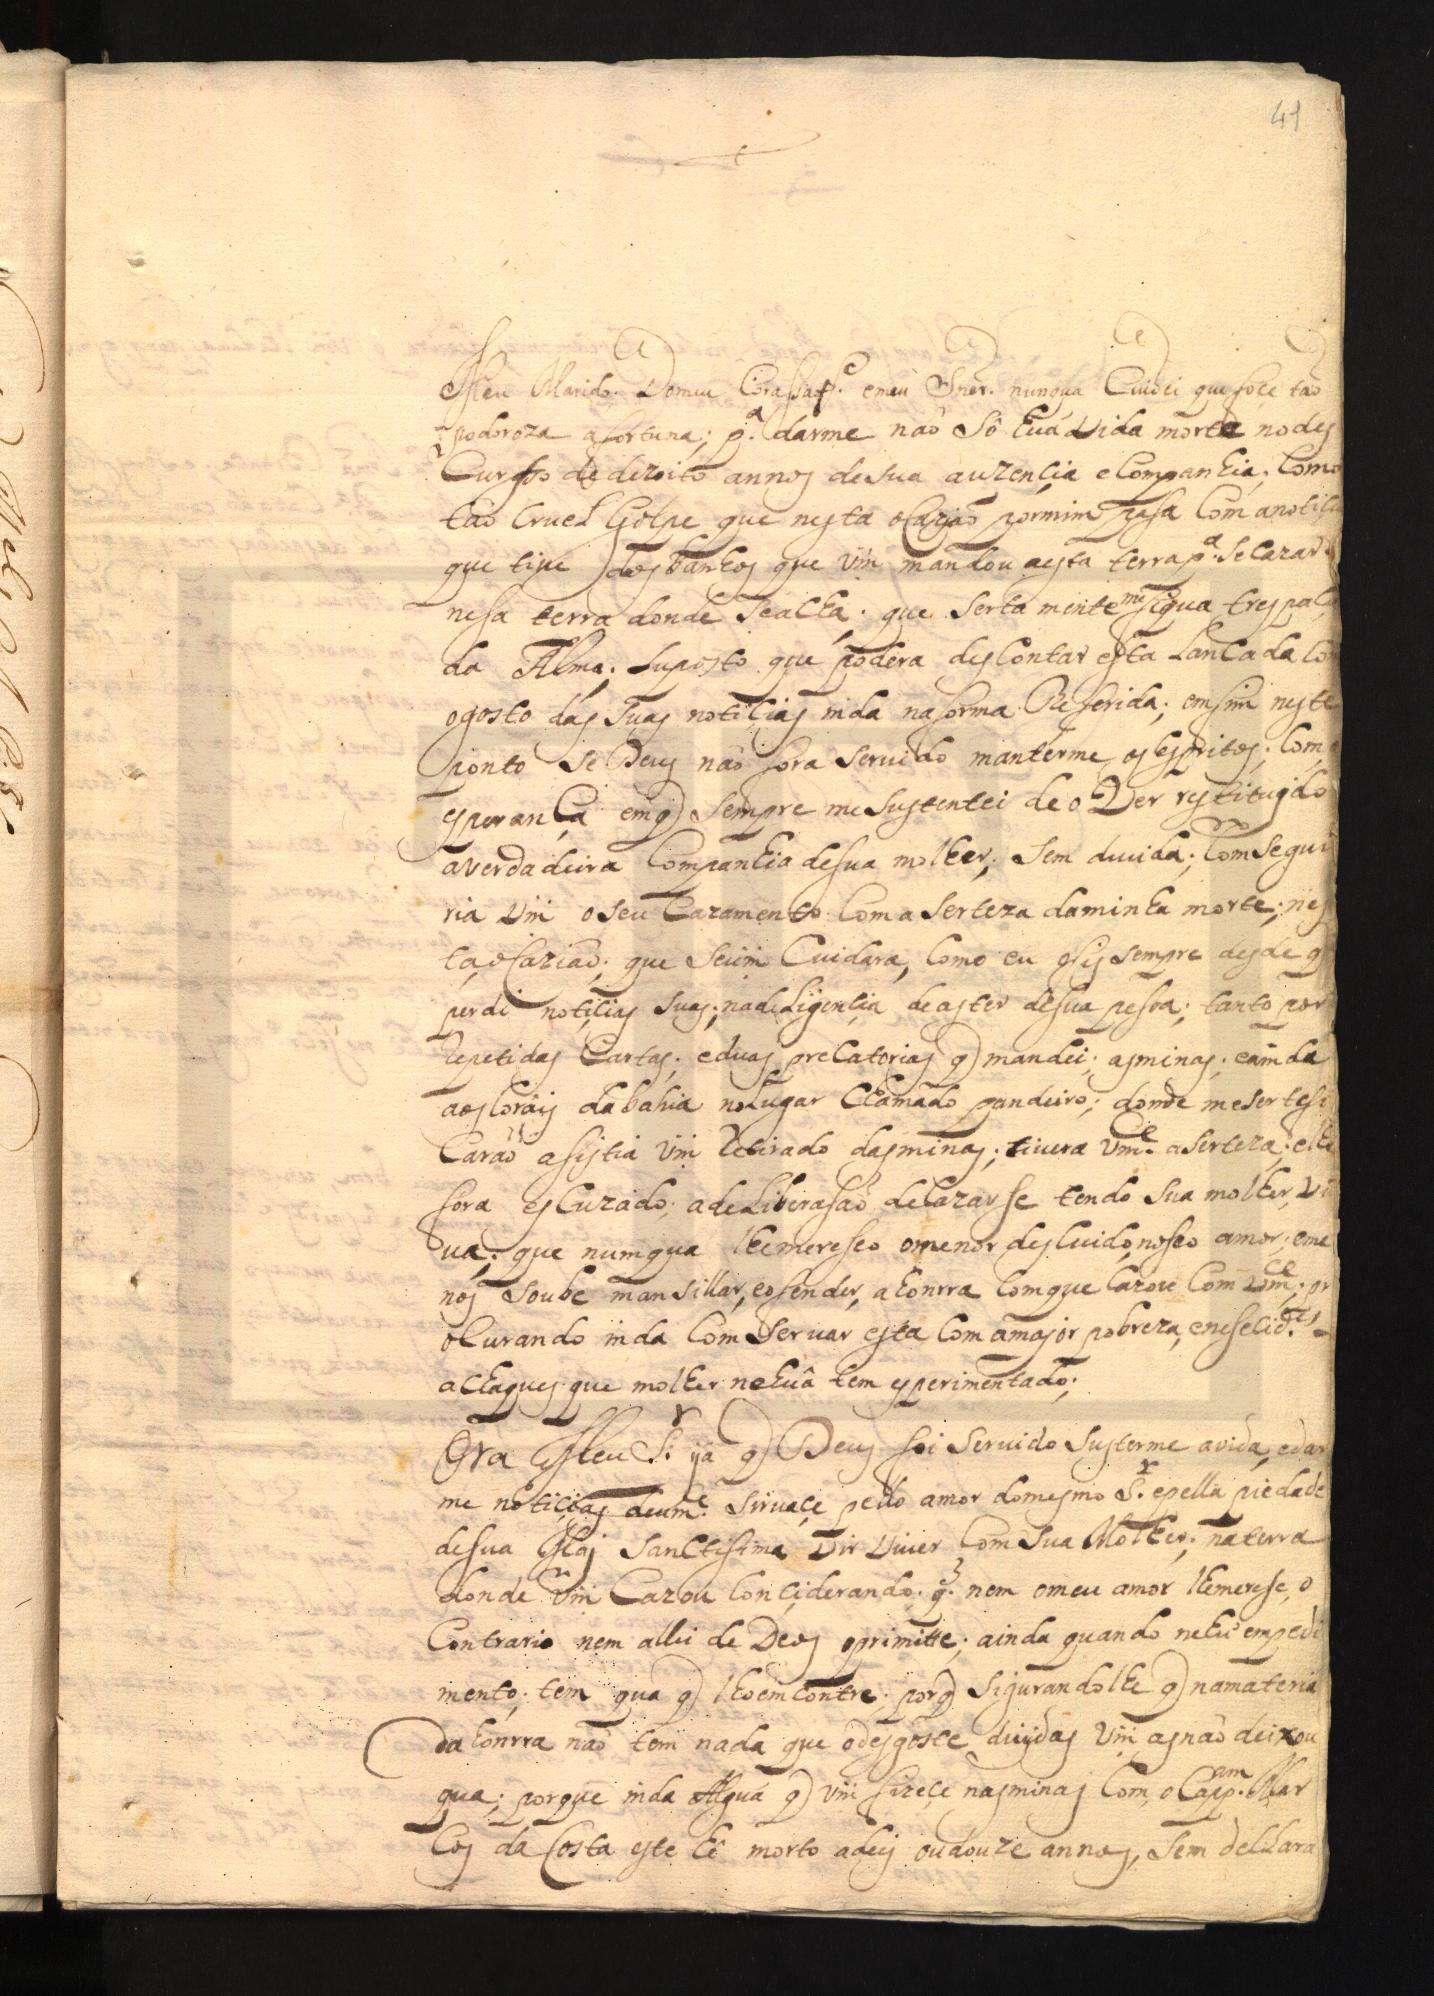 41
Meu Marido do meu Corassaõ e meu Snor. nunqua Cuidei que foçe tao
podoroza a fortuna; p.ª darme naõ Sô huá vida morta no des
Curço de dezoito annos de sua auzençia e Companhia; Como
tao Cruel Golpe que nesta oCaziaõ por mim pasa Com a notiçia
que tiue dos banhos que Vm mandou a esta terra p.ª se Cazar
nesa terra donde se acha. que serta mente me sigua trespaça
da Alma; suposto que podera desContar esta LanCada Com
o gosto das suas notiçias inda na forma Referida; em fim neste
ponto se Deus naõ fora seruido manterme os espritos; Com a
esperanCa em q sempre me sustentei de o Ver restituydo
a verdadeira Companhia de sua molher; sem duuida; Comsegui
ria Vm o seu Cazamento Com a serteza da minha morte; nes
ta oCaziaõ; que se vm Cuidara, Como eu o fis sempre desde q
perdi notiçias suas; na deligençia de as ter de sua pesoa; tanto por
Repetidas Cartas; e duas preCatorias q mandei; as minas; e ainda
aos Corais da bahia no Lugar Chamado pandeiro; donde me sertefi
Caraõ asistia Vm Retirado das minas; tiuera vm.ce a serteza; e lhe
fora esCuzado; a deLiberasaõ de Cazar se tendo sua molher vi
ua; que numqua lhe mereseo o menor desCuido no seo amor; e me
nos soube mansillar, e ofender, a honrra Com que Cazou Com vm.ce; pr
oCurando inda Comseruar esta Com a major pobreza, e nefelid.es
achaques que molher nehuã tem esperimentado;
Ora Meu S.r ya q Deus foi Seruido Susterme a vida, e dar
me notiçias de um.ce siruaçe pello amor do mesmo S.r e pella piedade
de sua Maj SanCtisima Vir viuer Com sua Molher; na terra
donde Vm Cazou Conçiderando; q. nem o meu amor lhe merese, o
Contrario nem a llei de Deos o primitte; ainda quando nehu empedi
mento; tem qua q lho emContre; porq sigurandolhe q na materia
da honrra naõ tem nada que o desgoste diuidas Vm as naõ deixou
qua; porque inda Alguá q vm fizeçe nas minas Com o Cap.am Mar
Cos da Costa este hê morto a des ou douze annos, sem deClara